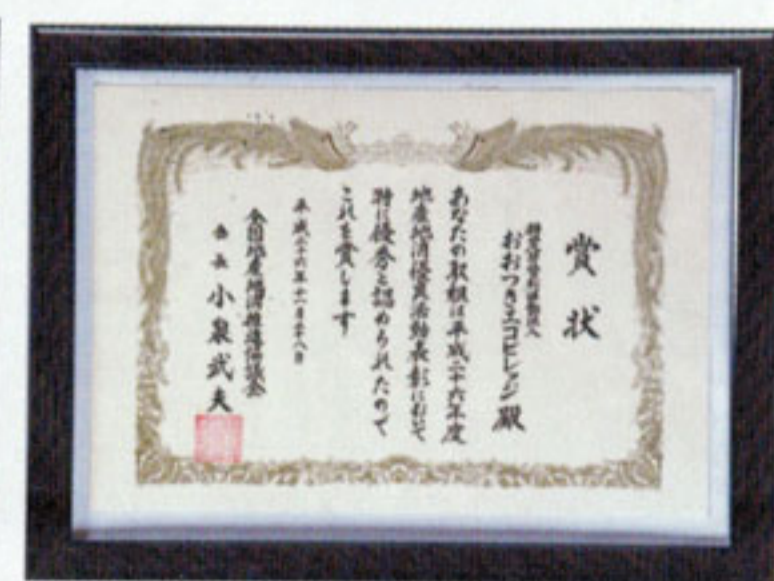 賞状
特定非営利活動法人
おおつきエコビレッジ 殿
あなたの取組は平成二十六年度
地産地消優良活動表彰において
特に優秀と認められたので
これを賞します
平成二十六年十一月二十八日
全国地産地消推進協議会
会長 小泉武夫